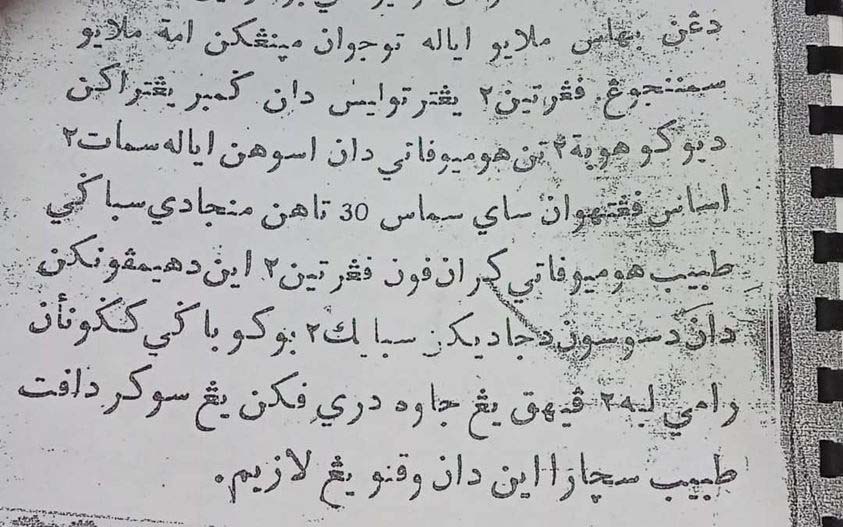 دڠن بهاس ملايو اياله توجوان مپنڠکن امة ملايو
سمننجوڠ. فڠرتين٢ يڠترتوليس دان ڬمبر يڠتراکن
ديوکو هوبة٢تن هوميوفاتي دان اسوهن اياله سمات٢
اساس فڠتهوان ساي سماس 30 تاهن منجادي سباݢي
طبيب هوميوفاتي کران فون فڠرتين٢ اين دهيمڤونکن
دان دسوسون دجاديکن سبايك٢ بوکو باݢي کݢونأن
رامي لبه٢ ڤيهق يڠ جاوه دري فکن يڠ سوکر دافت
طبيب سچارا اين دان وقتو يڠ لازيم.